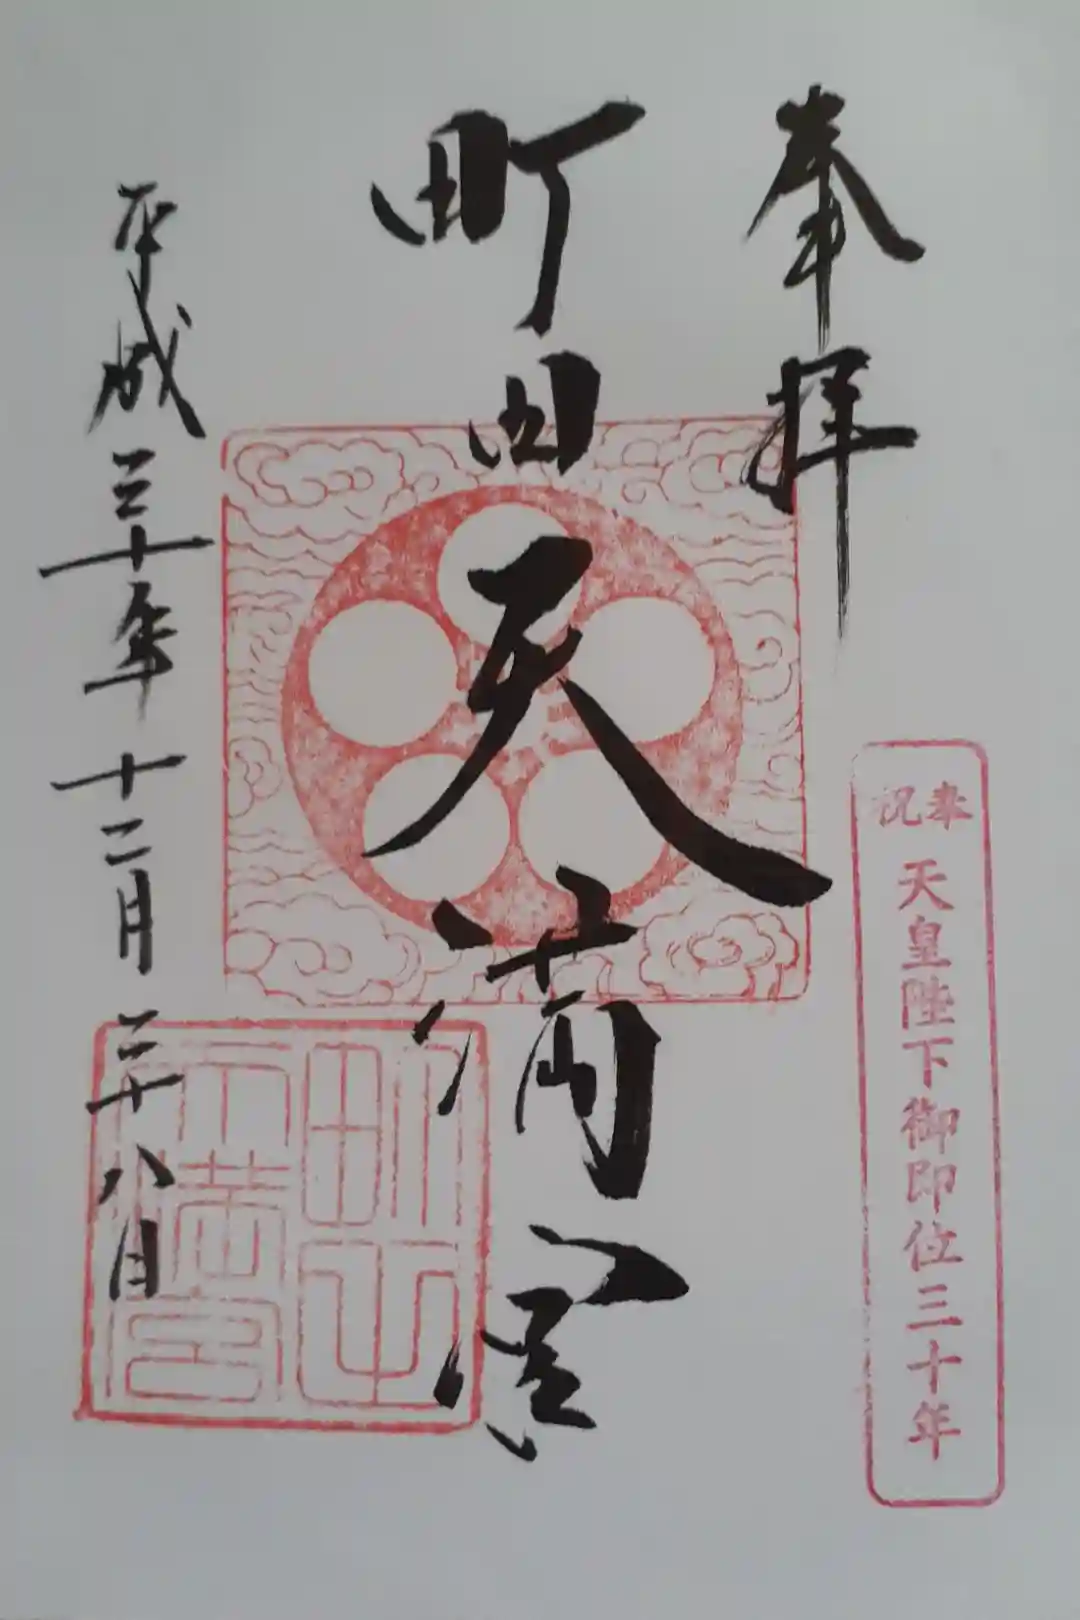 奉拝
奉祝
天皇陛下御即位三十年
町田天満宮
平成三十年十二月二十八日
天満宮